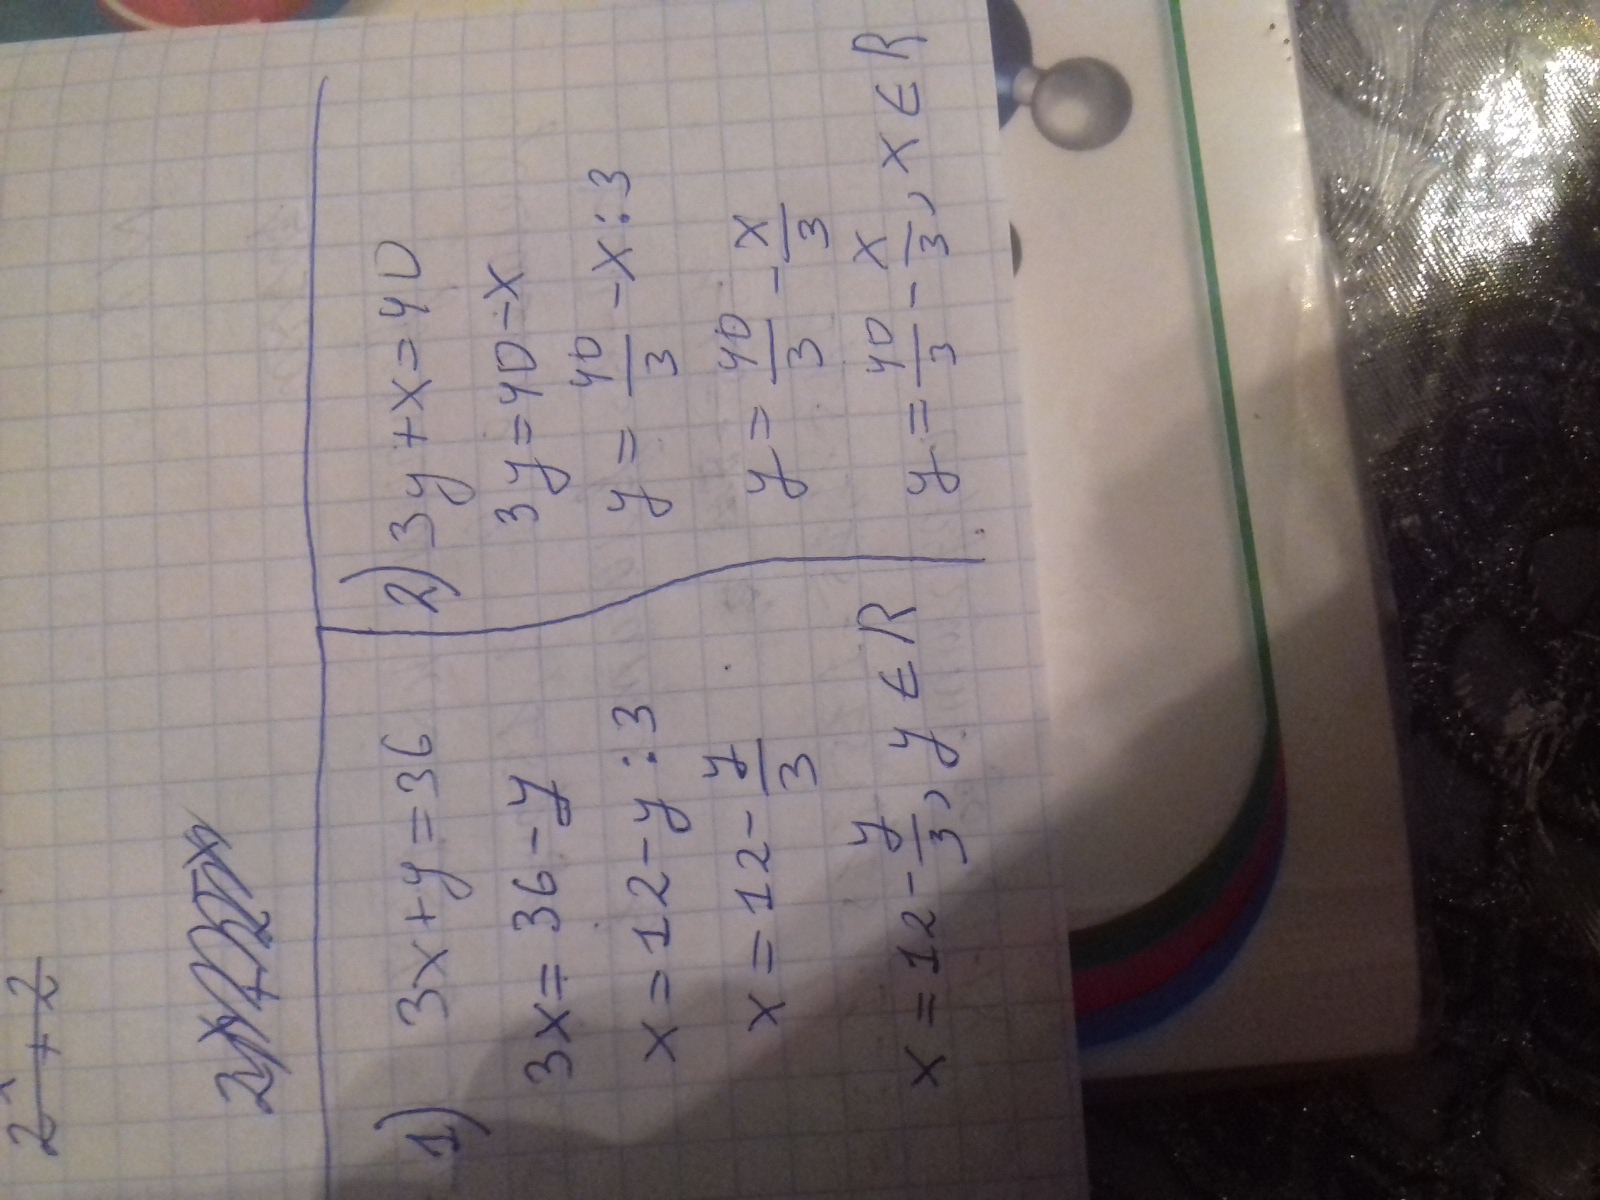 2
+ 2
1) 3x + y = 36
3x = 36 - y
x = 12 - y : 3
x = 12 - y/3
x = 12 - y/3, y ∈ R
2) 3y + x = 40
3y = 40 - x
y = 40/3 - x : 3
y = 40/3 - x/3
y = 40/3 - x/3, x ∈ R